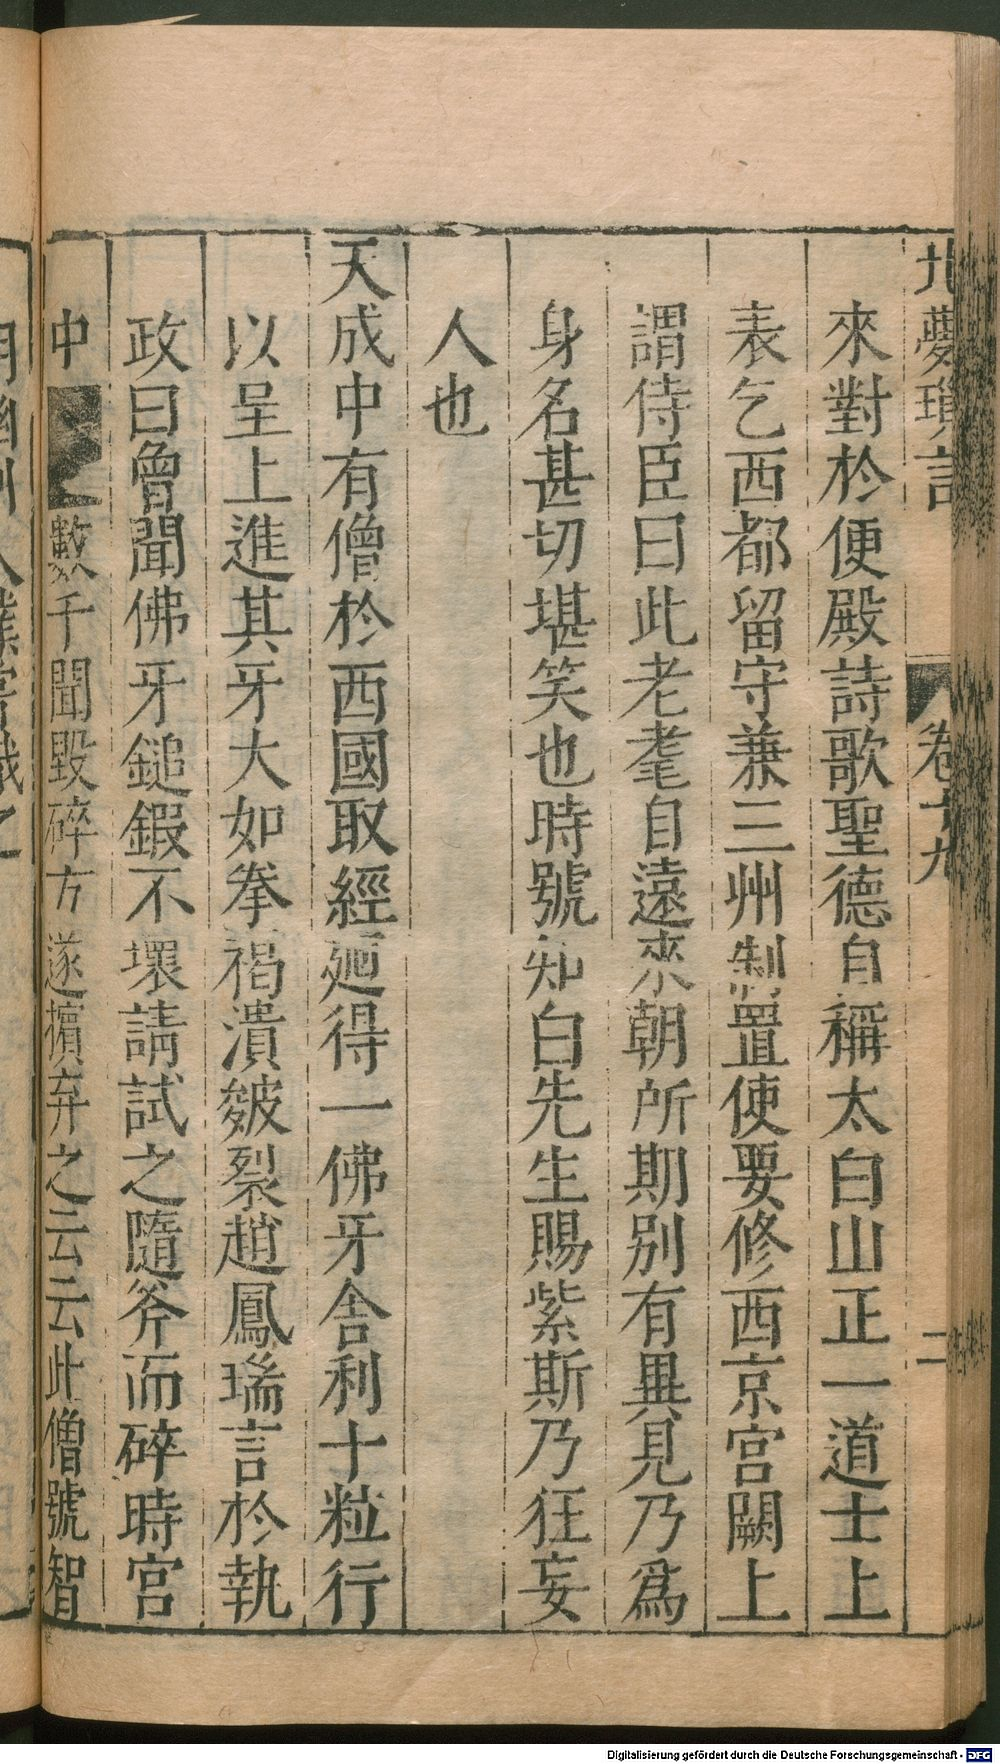 北夢瑣言 卷十九 二
來對於便殿詩歌聖德自稱太白山正一道士上
表乞西都留守兼三州制置使要修西京宮闕上
謂侍臣曰此老耄自遠來朝所期別有異見乃爲
身名甚切堪笑也時號知白先生賜紫斯乃狂妄
人也
天成中有僧於西國取經廻得一佛牙舍利十粒行
以呈上進其牙大如拳褐漬皴裂趙鳳瑞言於執
政曰曾聞佛牙鎚鍜不壞請試之隨斧而碎時宮
中數千聞毀碎方遂擯弃之云云此僧號智
Digitalisierung gefördert durch die Deutsche Forschungsgemeinschaft - DFG